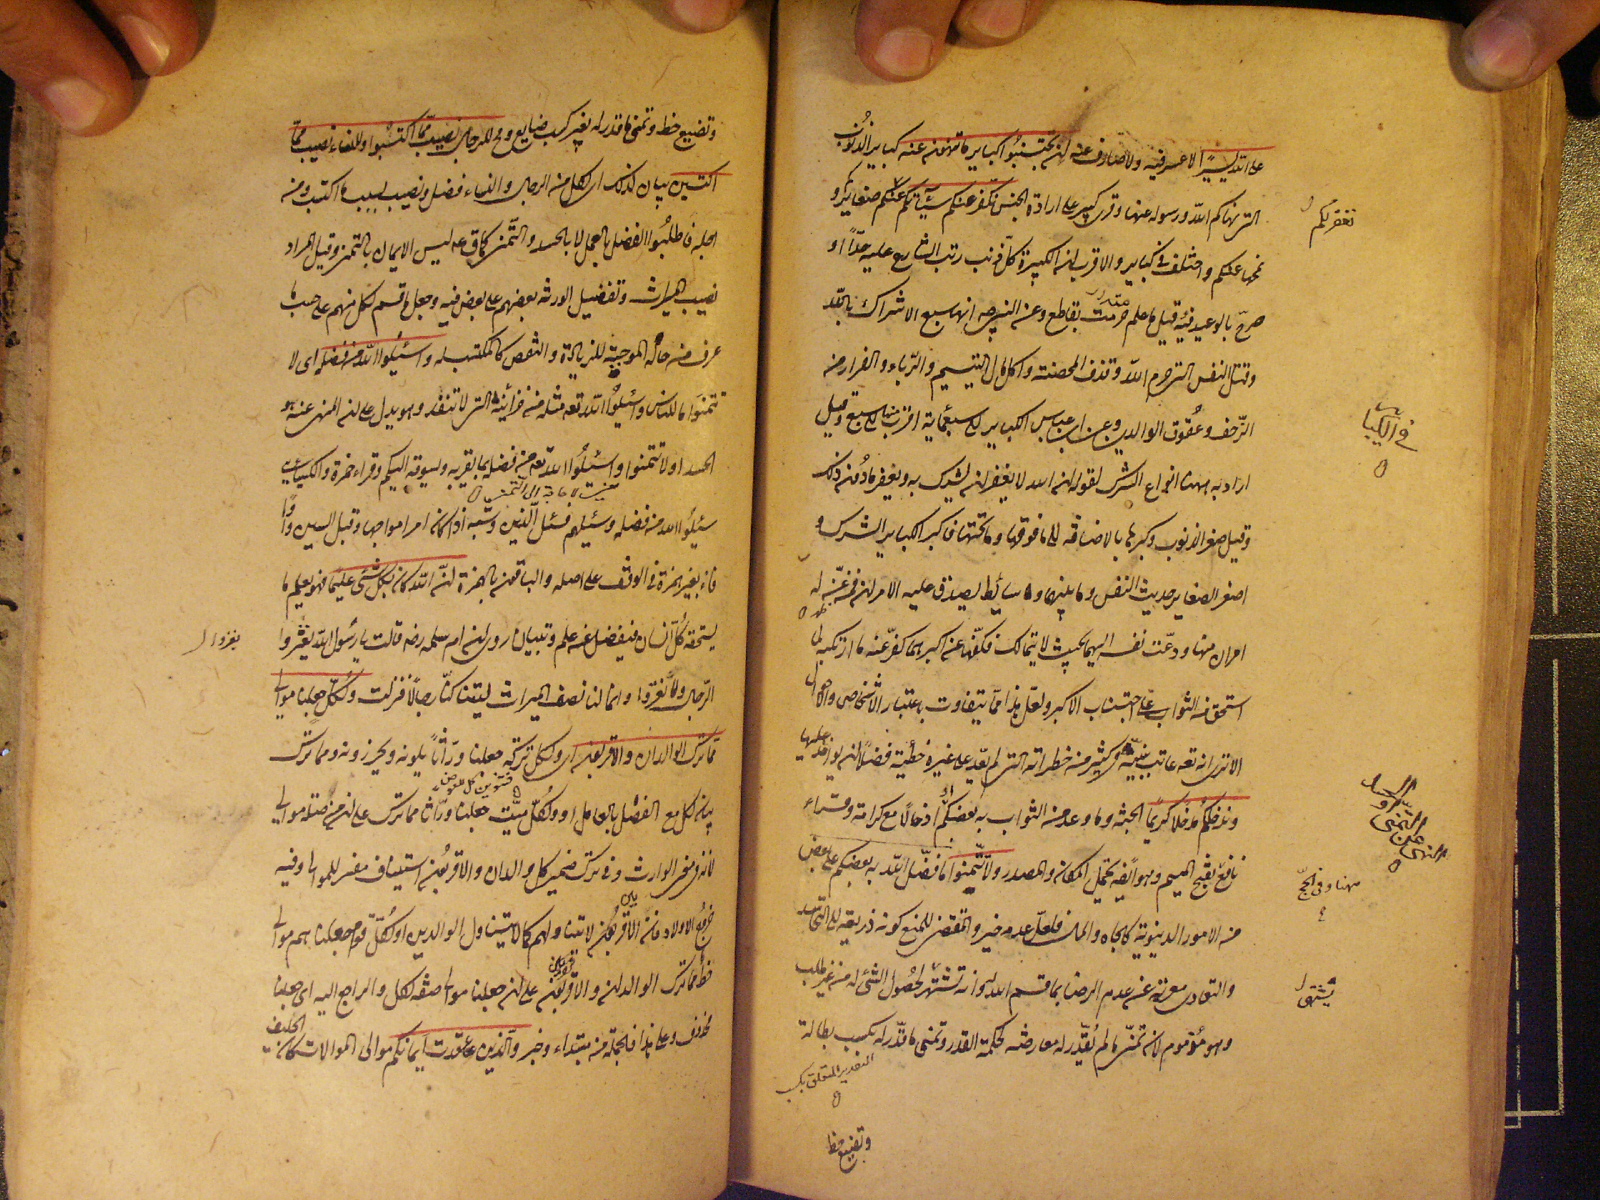 على الله يسيرا لا عسر فيه ولا صارف عنه ان تجتنبوا كباير ما تنهون عنه كباير الذنوب
التي نهاكم الله ورسوله عنها وقرئ كبير على ارادة الجنس نكفر عنكم سيئاتكم نغفر لكم صغايركم و
نمحها عنكم واختلف في الكباير والاقرب ان الكبيرة كل ذنب رتب الشارع عليه حدا او
صرح بالوعيد فيه وقيل ما علم حرمته بقاطع وعن النبي صم انها سبع الاشراك بالله
وقتل النفس التي حرم الله وقذف المحصنة واكل مال اليتيم والرباء والفرار من
الزحف وعقوق الوالدين وعن ابن عباس الكباير الى سبعماية اقرب منها الى سبع وقيل
اراد به ههنا انواع الشرك لقوله ان الله لا يغفر ان يشرك به ويغفر ما دون ذلك
وقيل صغر الذنوب وكبرها بالاضافة الى ما فوقها وما تحتها فاكبر الكباير الشرك و
اصغر الصغاير حديث النفس وما بينهما وسائط يصدق عليه الامران فمن عن له
امران منها ودعت نفسه اليهما بحيث لا يتمالك فكفها عن اكبرهما كفر عنه ما ارتكبه لما
استحق من الثواب على اجتناب الاكبر ولعل هذا مما يتفاوت باعتبار الاشخاص والاحوال
الا ترى انه تعه عاتب نبيه في كثير من خطراته التي لم يعد على غيره خطيئة فضلا ان يؤاخذ عليها
وندخلكم مدخلا كريما الجنة وما وعد من الثواب به او ادخالا مع كرامة وقراء
نافع بفتح الميم وهو ايضه يحتمل المكان والمصدر ولا تتمنوا ما فضل الله به بعضكم على بعض
من الامور الدنيوية كالجاه والمال فلعل عدمه خير والمقتضي للمنع كونه ذريعة الى التحاسد
والتعادي معربة عن عدم الرضا بما قسم الله له وانه تشتهي لحصول الشئ له من غير طلب
وهو مذموم لان تمني ما لم يقدر له معارضة لحكمة القدر وتمني ما قدر له بكسب بطالة
وتضييع حظ
نغفر لكم
في الكباير
النهي عن التمني والحسد
ههنا وفي الحج
تشتهي
وتضييع حظ وتمني ما قدر له بغير كسب ضايع ومح للرجال نصيب مما اكتسبوا وللنساء نصيب مما
اكتسبن بيان لذلك اي لكل من الرجال والنساء فضل ونصيب بسبب ما اكتسب ومن
اجله فاطلبوا الفضل بالعمل لا بالحسد والتمني كما ق عه ليس الايمان بالتمني وقيل المراد
نصيب الميراث وتفضيل الورثة بعضهم على بعض فيه وجعل ما قسم لكل منهم على حسب ما
عرف من حاله الموجبة للزيادة والنقص كالمكتسب له واسئلوا الله من فضله اي لا
تتمنوا ما للناس واسئلوا الله تعه مثله من خزائنه التي لا تنفد وهو يدل على ان المنهي عنه هو
الحسد او لا تتمنوا واسئلوا الله تعه من فضله بما يقربه ويسوقه اليكم وقراء حمزة والكسائي
سئلوا الله من فضله وسئلهم فسئل الذين وشبهه اذا كان امرا مواجها وقبل السين واو
فاء بغير همزة في الوقف على اصله والباقون بالهمزة ان الله كان بكل شئ عليما فهو يعلم ما
يستحقه كل انسان فيفضل عن علم وتبيان روي ان ام سلمه رضه قالت يا رسول الله يغزوا
الرجال ولا نغزوا وانما لنا نصف الميراث ليتنا كنا رجالا فنزلت ولكل جعلنا موالي
مما ترك الوالدان والاقربون اي ولكل تركة جعلنا وراثا يلونه ويحرزونه ومما ترك
بيان لكل مع الفصل بالعامل او ولكل ميت جعلنا وراثا مما ترك على ان من صلة موالي
لانه في معنى الوارث وفي ترك ضمير كل والوالدان والاقربون استيناف مفسر للموالي وفيه
خروج الاولاد فان الاقربون لا يتناولهم كما لا يتناول الوالدين او لكل قوم جعلناهم موالي
حظ مما ترك الوالدان والاقربون على ان جعلنا موالي صفة كل والراجع اليه اي جعلنا
محذوف وعلى هذا فالجملة من مبتداء وخبر والذين عاقدت ايمانكم موالي الموالات كان الحليف
يغزوا